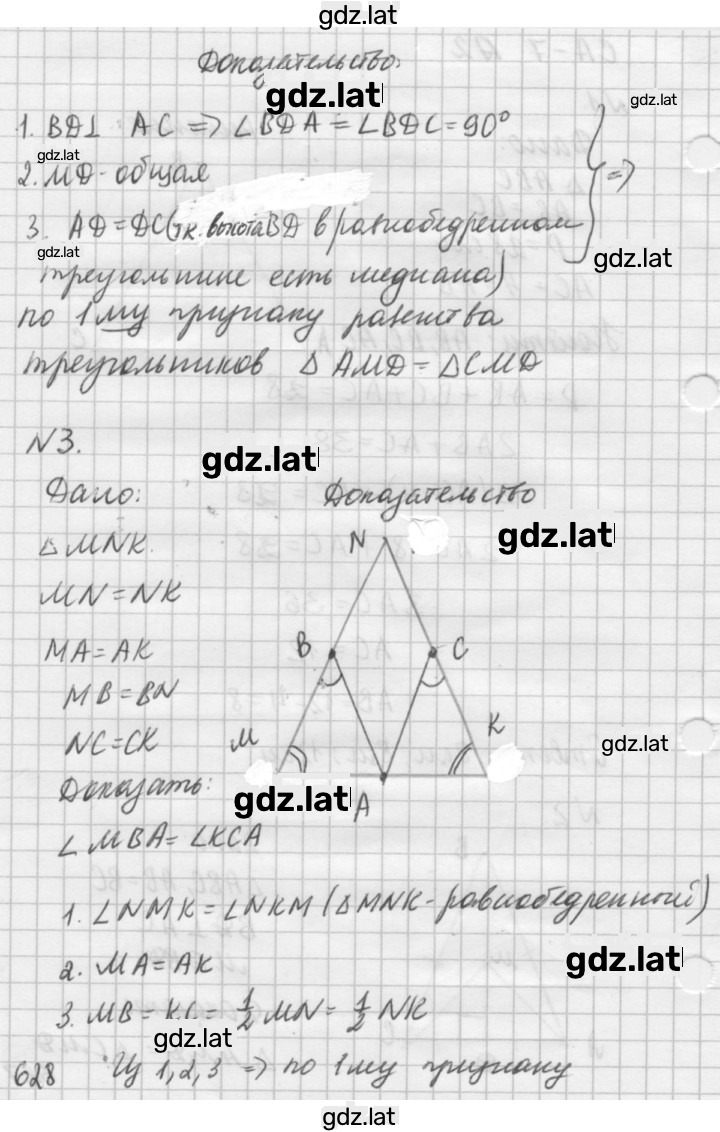 gdz.lat
Доказательство:
gdz.lat
1. BD⊥ AC => ∠BDA = ∠BDC = 90° gdz.lat
gdz.lat
2. MD - общая =>
3. AD = DC (т.к. высота BD в равнобедренном
gdz.lat gdz.lat
треугольнике есть медиана)
по 1му признаку равенства
треугольников △AMD = △CMD
N3. gdz.lat
Дано: Доказательство
△MNK. N gdz.lat
MN = NK
MA = AK B C
MB = BN
NC = CK M K gdz.lat
Доказать: gdz.lat A
∠MBA = ∠KCA
1. ∠NMK = ∠NKM (△MNK - равнобедренный)
2. MA = AK gdz.lat
3. MB = KC = 1/2 MN = 1/2 NK
gdz.lat
628 Из 1, 2, 3 => по 1му признаку
gdz.lat